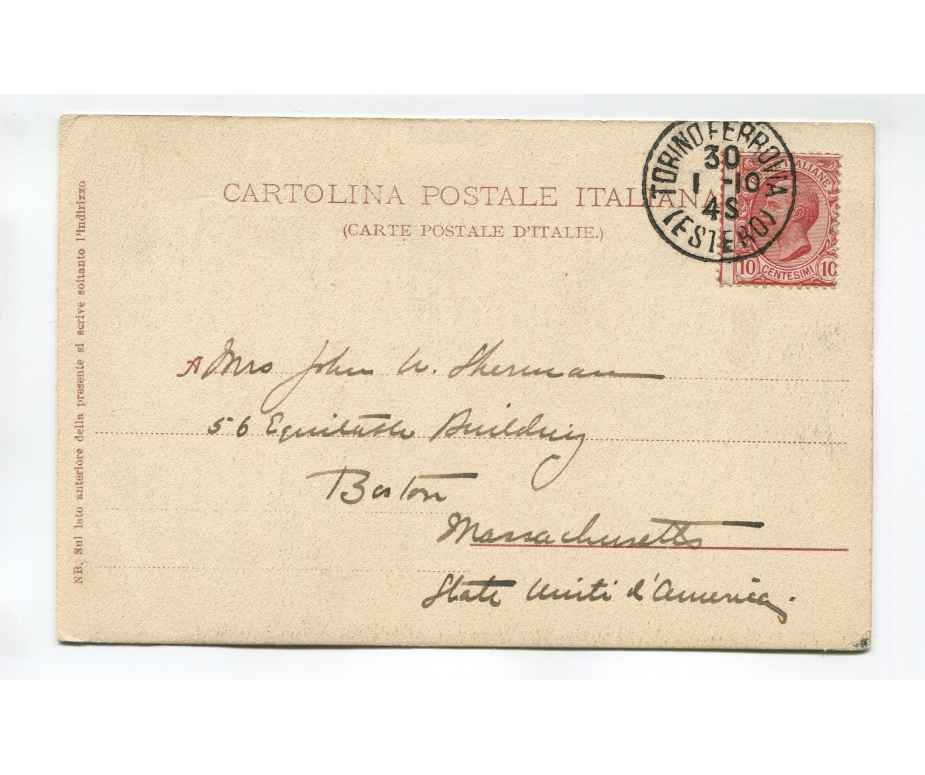 CARTOLINA POSTALE ITALIANA
(CARTE POSTALE D'ITALIE.)
TORINO FERROVIA
30
1 -10
4S
(ESTERO)
ITALIANE
10 CENTESIMI 10
NB. Sul lato anteriore della presente si scrive soltanto l'indirizzo
A Mrs John W. Sherman
56 Equitable Building
Boston
Massachusetts
State Uniti d'America.